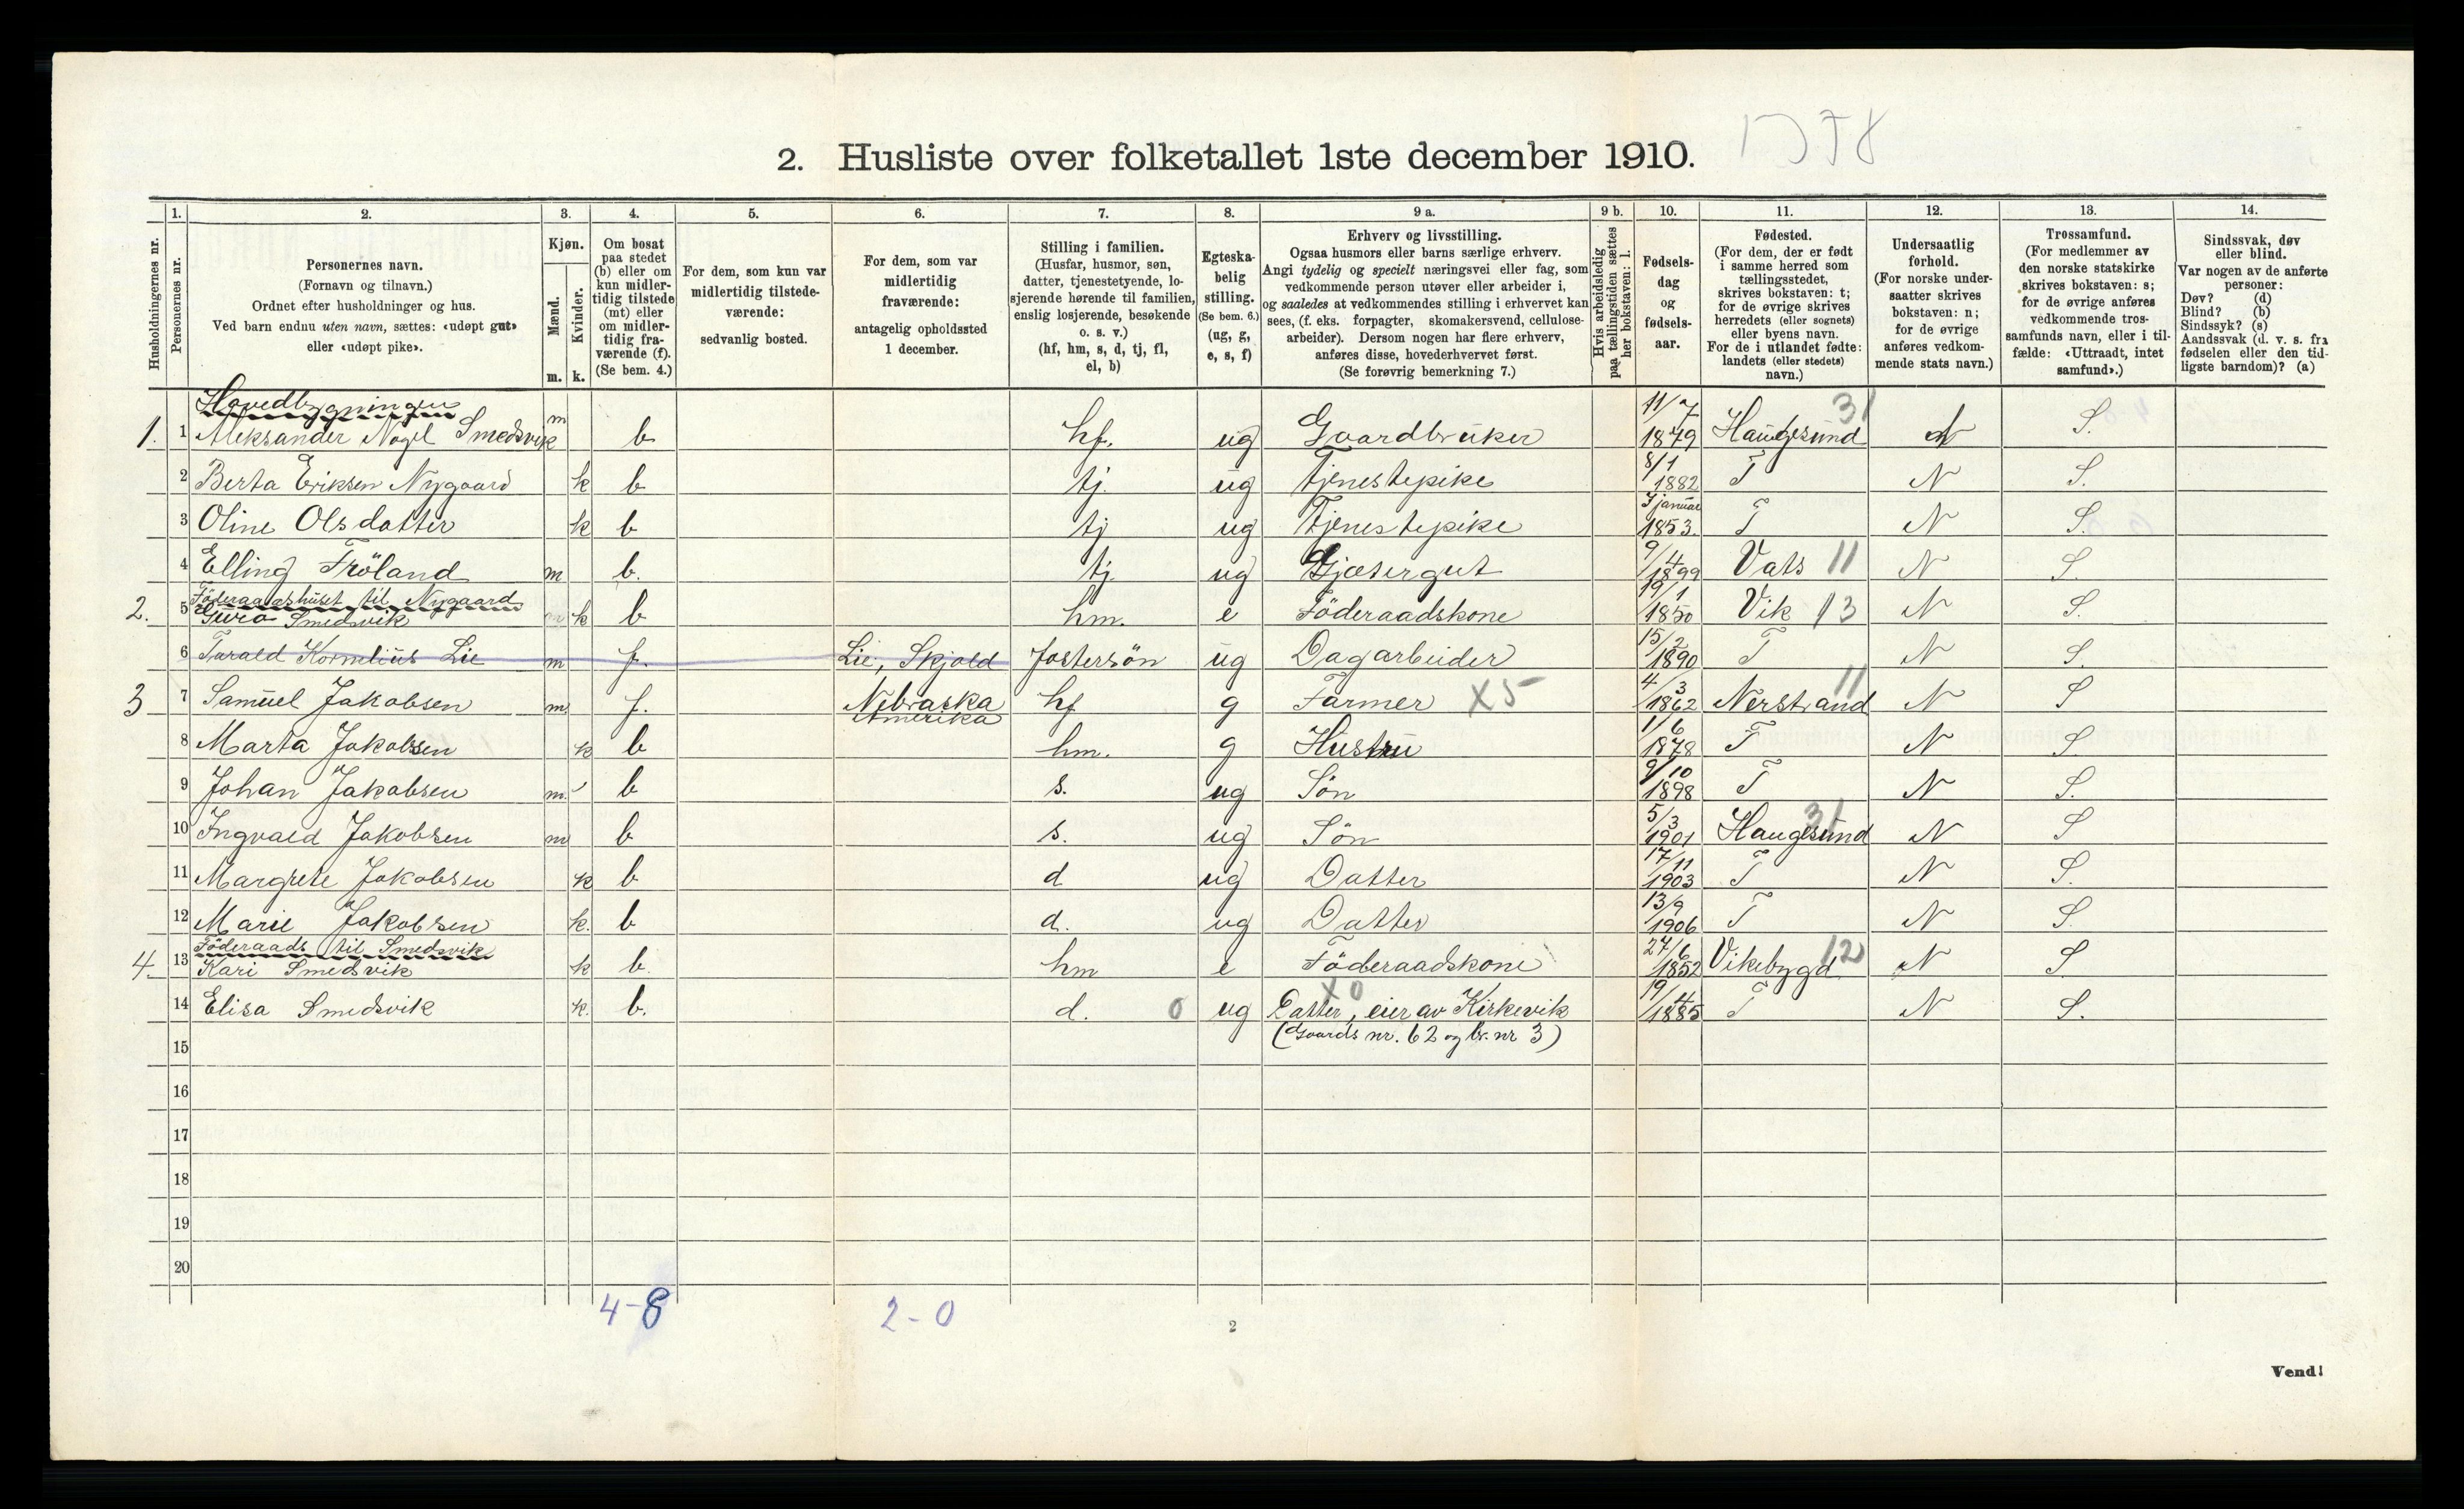 2. Husliste over folketallet 1ste december 1910.
Husholdningernes nr.
1. Personernes nr.
2. Personernes navn.
(Fornavn og tilnavn.)
Ordnet efter husholdninger og hus.
Ved barn endnu uten navn, sættes: «udøpt gut»
eller «udøpt pike».
3. Kjøn.
Mænd. m.
Kvinder. k.
4. Om bosat
paa stedet
(b) eller om
kun midler-
tidig tilstede
(mt) eller
om midler-
tidig fra-
værende (f).
(Se bem. 4.)
5. For dem, som kun var
midlertidig tilstede-
værende:
sedvanlig bosted.
6. For dem, som var
midlertidig
fraværende:
antagelig opholdssted
1 december.
7. Stilling i familien.
(Husfar, husmor, søn,
datter, tjenestetyende, lo-
sjerende hørende til familien,
enslig losjerende, besøkende
o. s. v.)
(hf, hm, s, d, tj, fl,
el, b)
8. Egteska-
belig
stilling.
(Se bem. 6.)
(ug, g,
e, s, f)
9 a. Erhverv og livsstilling.
Ogsaa husmors eller barns særlige erhverv.
Angi tydelig og specielt næringsvei eller fag, som
vedkommende person utøver eller arbeider i,
og saaledes at vedkommendes stilling i erhvervet kan
sees, (f. eks. forpagter, skomakersvend, cellulose-
arbeider). Dersom nogen har flere erhverv,
anføres disse, hovederhvervet først.
(Se forøvrig bemerkning 7.)
9 b. Hvis arbeidsledig
paa tællingstiden sættes
her bokstaven: l.
10. Fødsels-
dag
og
fødsels-
aar.
11. Fødested.
(For dem, der er født
i samme herred som
tællingsstedet,
skrives bokstaven: t;
for de øvrige skrives
herredets (eller sognets)
eller byens navn.
For de i utlandet fødte:
landets (eller stedets)
navn.)
12. Undersaatlig
forhold.
(For norske under-
saatter skrives
bokstaven: n;
for de øvrige
anføres vedkom-
mende stats navn.)
13. Trossamfund.
(For medlemmer av
den norske statskirke
skrives bokstaven: s;
for de øvrige anføres
vedkommende tros-
samfunds navn, eller i til-
fælde: «Uttraadt, intet
samfund».)
14. Sindssvak, døv
eller blind.
Var nogen av de anførte
personer:
Døv? (d)
Blind? (b)
Sindssyk? (s)
Aandssvak (d. v. s. fra
fødselen eller den tid-
ligste barndom)? (a)
Hovedbygningen
1. 1 Aleksander Nagel Smedsvik m b hf. ug Gaardbruker 11/7 1879 Haugesund 31 N S.
2 Berta Eriksen Nygaard k b tj. ug Tjenestepike 8/1 1882 T N S.
3 Oline Olsdatter k b tj ug Tjenestepike I januar 1853. T N S.
4 Elling Fröland m b. tj. ug Gjætergut 9/4 1899 Vats 11 N S.
Föderaadshuset til Nygaard
2. 5 Guro Smedsvik k b hm. e Föderaadskone 19/1 1850 Vik 13 N S.
6 Tarald Kornelius Lie m f. Lie, Skjold Fostersön ug Dagarbeider 15/2 1890 T N S.
3 7 Samuel Jakobsen m. f. Nebraska Amerika hf g Farmer X5 4/3 1862 Nerstrand 11 N S
8 Marta Jakobsen k b hm. g Hustru 1/6 1878 T N S
9 Johan Jakobsen m. b s. ug Sön 9/10 1898 T N S.
10 Ingvald Jakobsen m b s. ug Sön 5/3 1901 Haugesund 31 N S
11 Margrete Jakobsen k b d ug Datter 17/11 1903 T N S.
12 Marie Jakobsen k. b d. ug Datter 13/9 1906 T N S.
Föderaads til Smedsvik
4. 13 Kari Smedsvik k b. hm e Föderaadskone 27/6 1852 Vikebygd 12 N S
14 Elisa Smedsvik k. b. d. 0 ug X0 Datter, eier av Kirkevik 19/4 1885 T N S.
15 (Gaards nr. 62 og br. nr 3)
16
17
18
19
20
4-8 2-0
2
Vend!